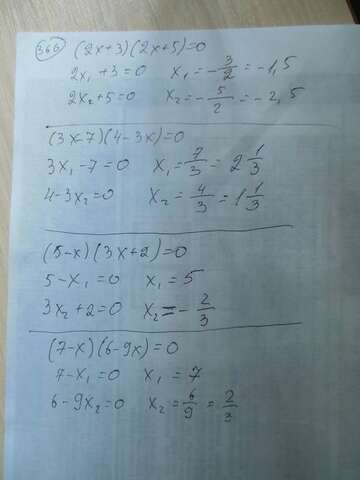 366 (2x+3)(2x+5)=0
2x₁+3=0 x₁=-3/2=-1,5
2x₂+5=0 x₂=-5/2=-2,5
(3x-7)(4-3x)=0
3x₁-7=0 x₁=7/3=2 1/3
4-3x₂=0 x₂=4/3=1 1/3
(5-x)(3x+2)=0
5-x₁=0 x₁=5
3x₂+2=0 x₂=-2/3
(7-x)(6-9x)=0
7-x₁=0 x₁=7
6-9x₂=0 x₂=6/9=2/3